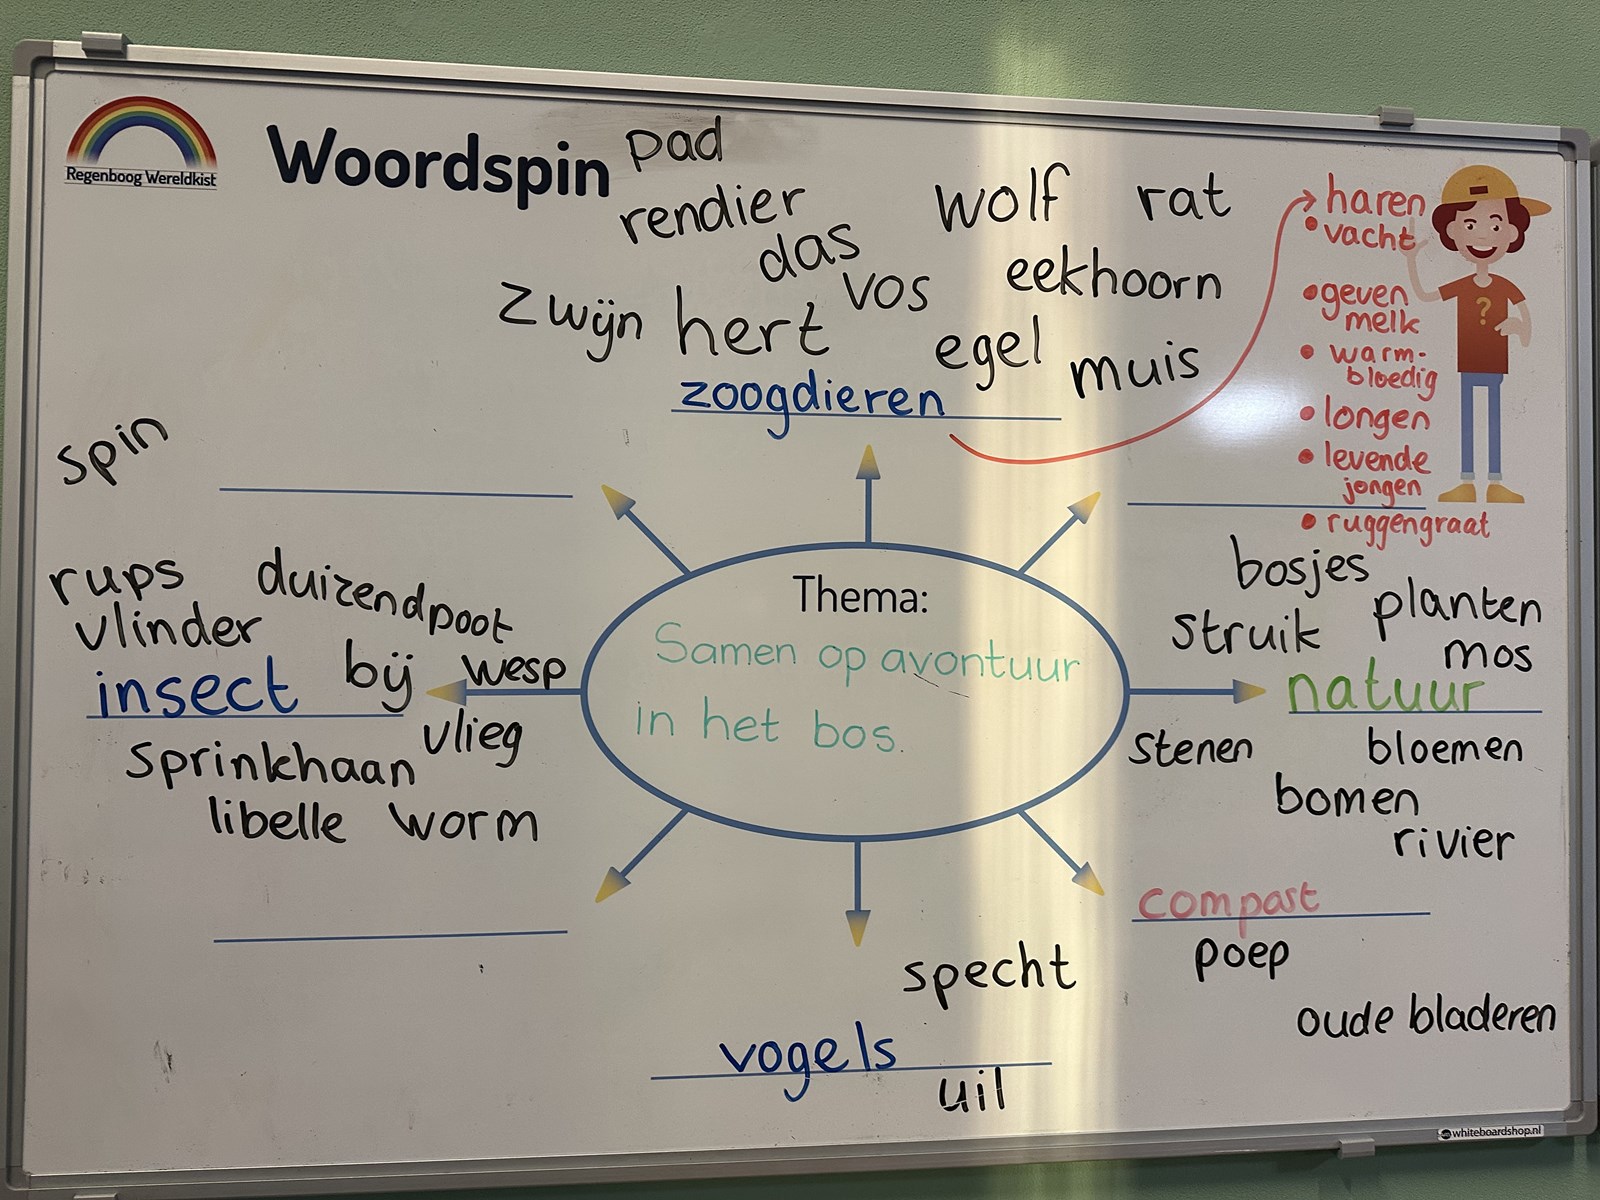 Regenboog Wereldkist
Woordspin
pad
rendier
das
wolf
rat
zwijn
hert
vos
eekhoorn
egel
muis
zoogdieren
haren
• vacht
• geven
melk
• warm-
bloedig
• longen
• levende
jongen
• ruggengraat
?
spin
rups
duizendpoot
vlinder
bij
wesp
insect
vlieg
sprinkhaan
libelle
worm
Thema:
Samen op avontuur
in het bos.
bosjes
planten
struik
mos
natuur
stenen
bloemen
bomen
rivier
compost
poep
oude bladeren
specht
vogels
uil
whiteboardshop.nl